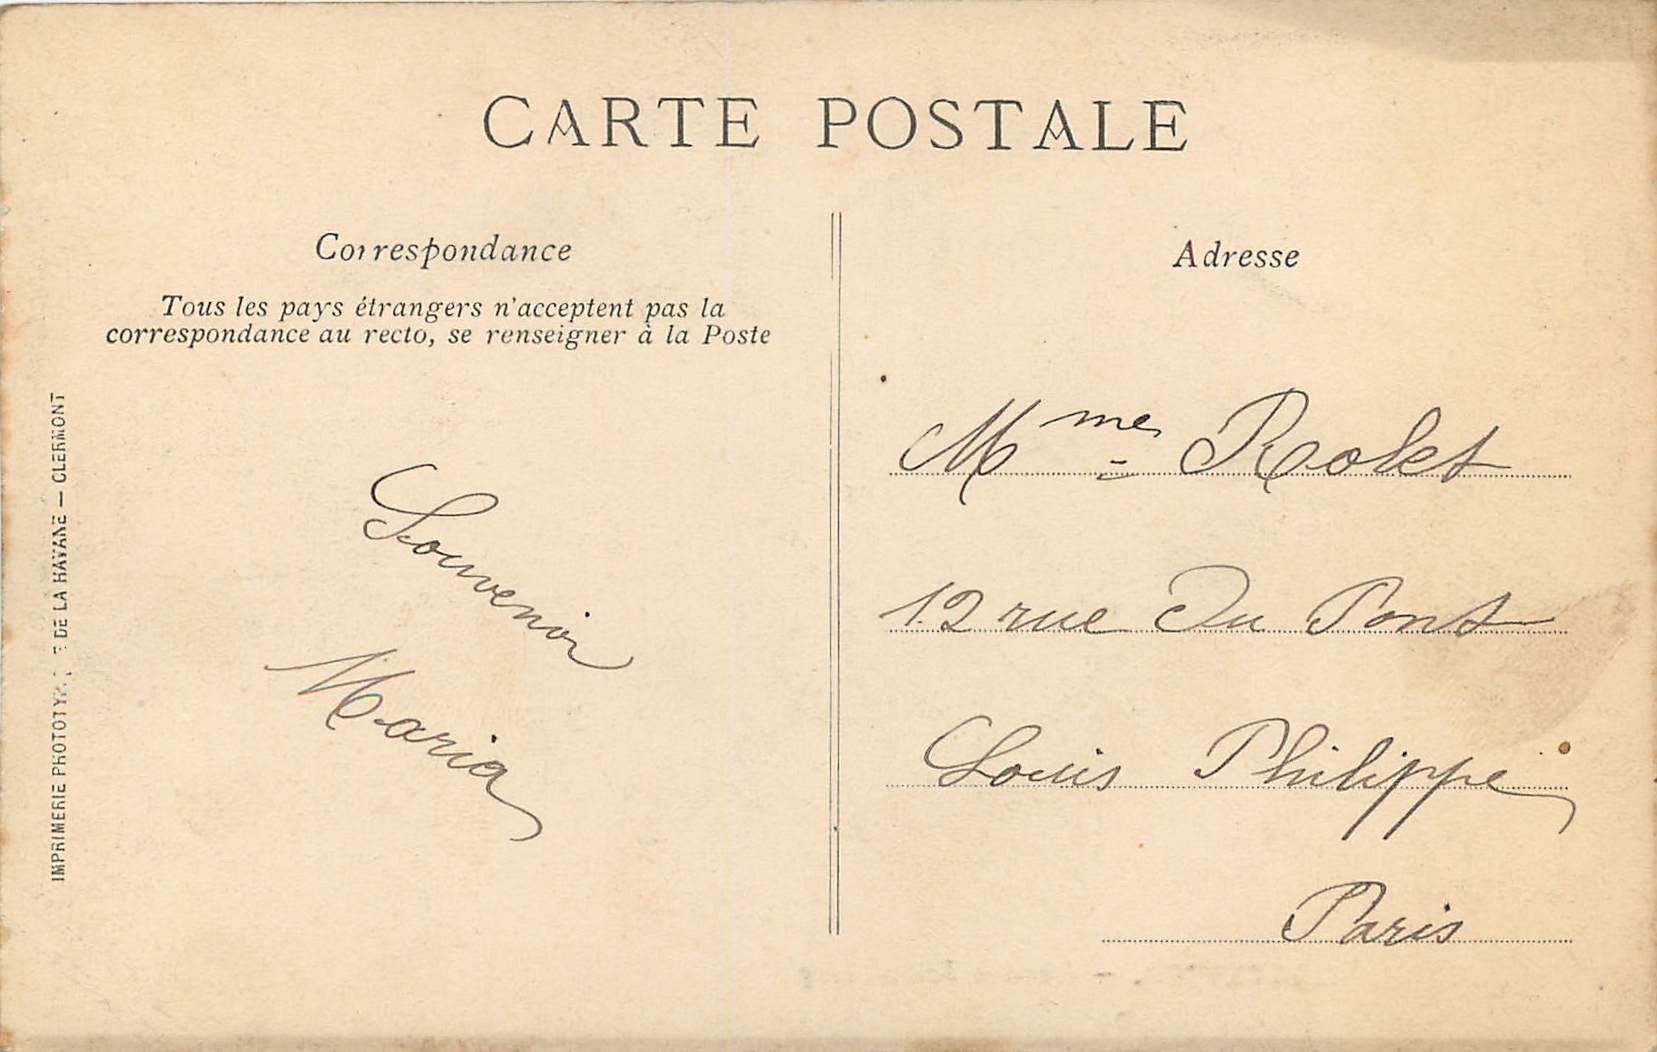 CARTE POSTALE
Correspondance
Tous les pays étrangers n'acceptent pas la
correspondance au recto, se renseigner à la Poste
Souvenir
Maria
IMPRIMERIE PHOTOTYP. DE LA HAVANE — CLERMONT
Adresse
Mme Rolet
12 rue Du Pont
Louis Philippe
Paris